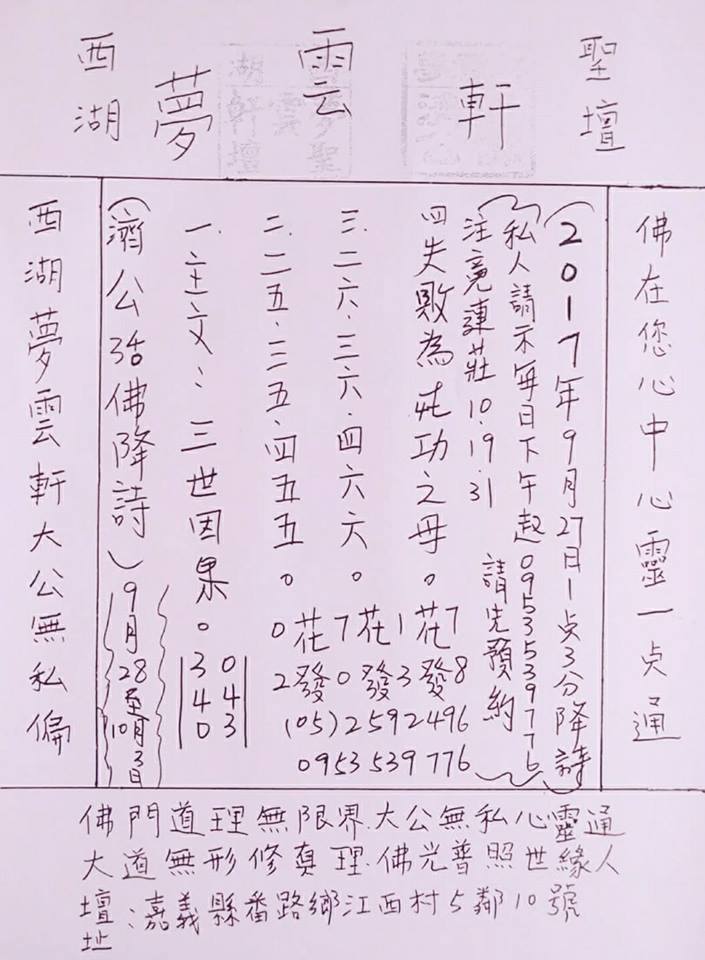 西湖夢雲軒聖壇
佛在您心中心靈一点通
(2017年9月27日1点3分降詩)
(私人請示每日下午起0953539776)
注意連莊10.19.31 請先預約
四失敗為成功之母。
三.二六.三六.四六六。
二.二五.三五.四五五。
一.主文:三世因果。
0花7花1花7
2發0發3發8
(05)2592496
0953539776
043
340
(濟公活佛降詩)9月28至10月3日
西湖夢雲軒大公無私偏
佛門道理無限界.大公無私心靈通
大道無形修真理.佛光普照世緣人
壇址:嘉義縣番路鄉江西村5鄰10號